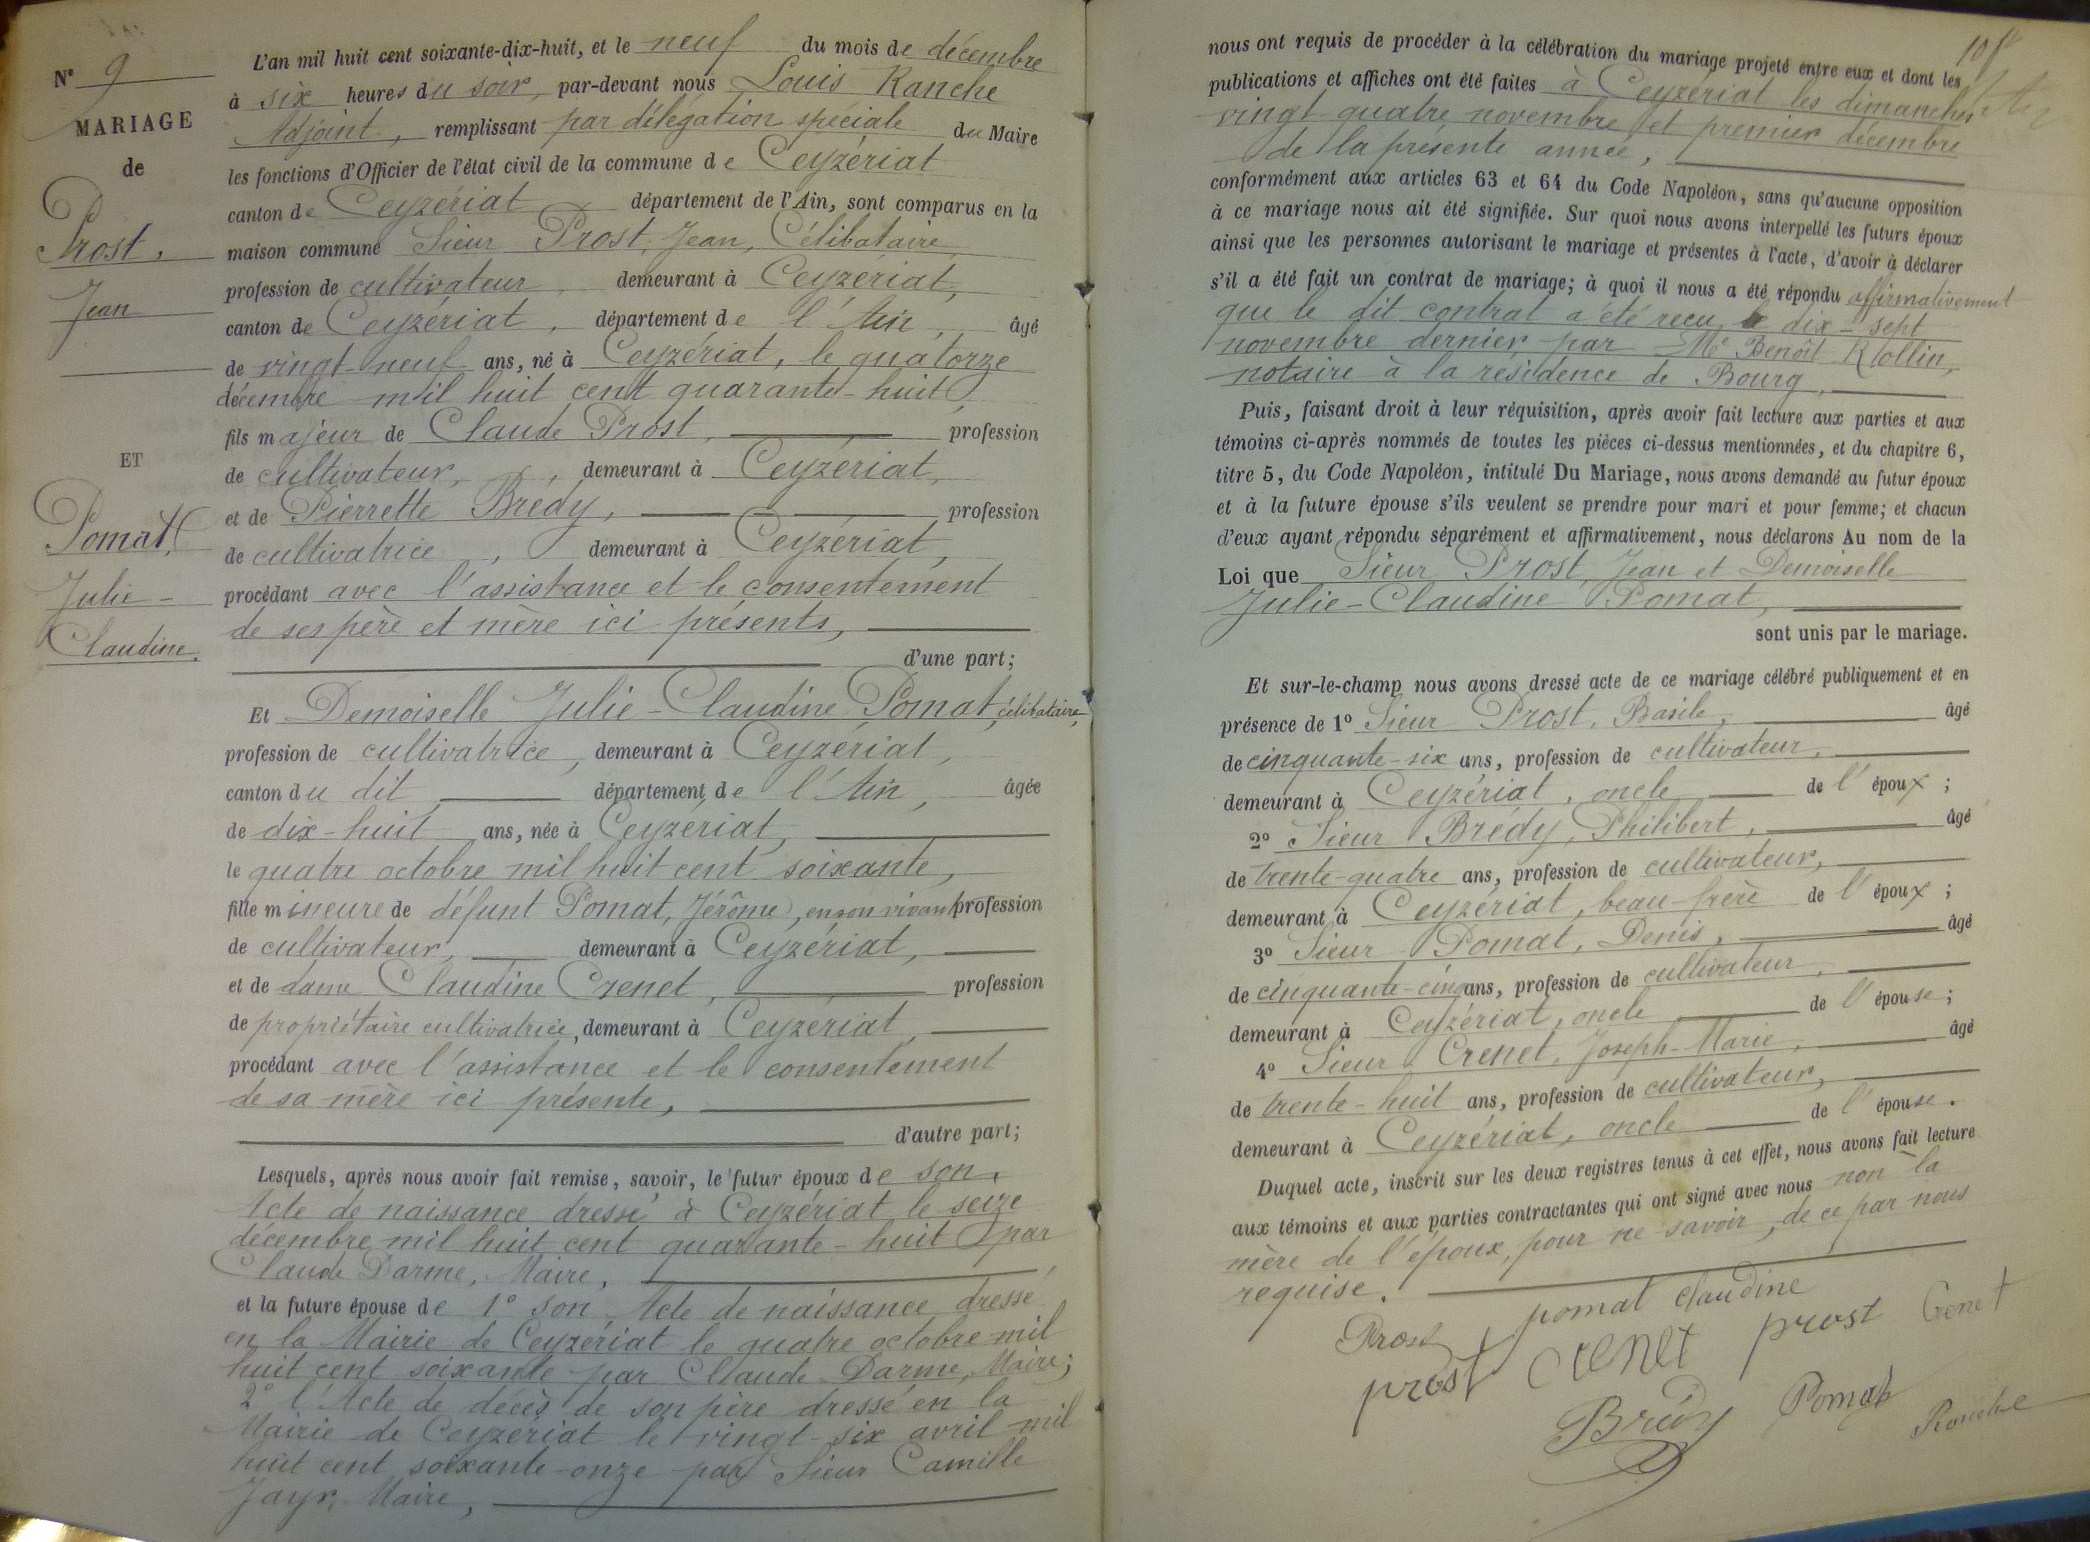 N° 9
MARIAGE
de
Prost,
Jean
ET
Pomat,
Julie-
Claudine.
L'an mil huit cent soixante-dix-huit, et le neuf du mois de décembre
à six heures du soir, par-devant nous Louis Ranche
Adjoint, remplissant par délégation spéciale du Maire
les fonctions d'Officier de l'état civil de la commune de Ceyzériat
canton de Ceyzériat département de l'Ain, sont comparus en la
maison commune Sieur Prost, Jean, Célibataire,
profession de cultivateur, demeurant à Ceyzériat,
canton de Ceyzériat, département de l'Ain, âgé
de vingt-neuf ans, né à Ceyzériat, le quatorze
décembre mil huit cent quarante-huit,
fils majeur de Claude Prost, profession
de cultivateur, demeurant à Ceyzériat,
et de Pierrette Bredy, profession
de cultivatrice, demeurant à Ceyzériat,
procédant avec l'assistance et le consentement
de ses père et mère ici présents,
d'une part;
Et Demoiselle Julie-Claudine Pomat, célibataire,
profession de cultivatrice, demeurant à Ceyzériat,
canton du dit, département de l'Ain, âgée
de dix-huit ans, née à Ceyzériat,
le quatre octobre mil huit cent soixante,
fille mineure de défunt Pomat, Jérôme, en son vivant profession
de cultivateur, demeurant à Ceyzériat,
et de dame Claudine Crenet, profession
de propriétaire cultivatrice, demeurant à Ceyzériat,
procédant avec l'assistance et le consentement
de sa mère ici présente,
d'autre part;
Lesquels, après nous avoir fait remise, savoir, le futur époux de son
Acte de naissance dressé à Ceyzériat le seize
décembre mil huit cent quarante-huit par
Claude Darme, Maire,
et la future épouse de 1° son Acte de naissance dressé
en la Mairie de Ceyzériat le quatre octobre mil
huit cent soixante par Claude Darme, Maire;
2° l'Acte de décès de son père dressé en la
Mairie de Ceyzériat le vingt-six avril mil
huit cent soixante-onze par Sieur Camille
Jayr, Maire,
10
nous ont requis de procéder à la célébration du mariage projeté entre eux et dont les
publications et affiches ont été faites à Ceyzériat les dimanches
vingt-quatre novembre et premier décembre
de la présente année,
conformément aux articles 63 et 64 du Code Napoléon, sans qu'aucune opposition
à ce mariage nous ait été signifiée. Sur quoi nous avons interpellé les futurs époux
ainsi que les personnes autorisant le mariage et présentes à l'acte, d'avoir à déclarer
s'il a été fait un contrat de mariage; à quoi il nous a été répondu affirmativement
que le dit contrat a été reçu le dix-sept
novembre dernier, par Me Benoît Rollin,
notaire à la résidence de Bourg,
Puis, faisant droit à leur réquisition, après avoir fait lecture aux parties et aux
témoins ci-après nommés de toutes les pièces ci-dessus mentionnées, et du chapitre 6,
titre 5, du Code Napoléon, intitulé Du Mariage, nous avons demandé au futur époux
et à la future épouse s'ils veulent se prendre pour mari et pour femme; et chacun
d'eux ayant répondu séparément et affirmativement, nous déclarons Au nom de la
Loi que Sieur Prost, Jean et Demoiselle
Julie-Claudine Pomat,
sont unis par le mariage.
Et sur-le-champ nous avons dressé acte de ce mariage célébré publiquement et en
présence de 1° Sieur Prost, Basile, âgé
de cinquante-six ans, profession de cultivateur,
demeurant à Ceyzériat, oncle de l'époux;
2° Sieur Bredy, Philibert, âgé
de trente-quatre ans, profession de cultivateur,
demeurant à Ceyzériat, beau-frère de l'époux;
3° Sieur Pomat, Denis, âgé
de cinquante-cinq ans, profession de cultivateur,
demeurant à Ceyzériat, oncle de l'épouse;
4° Sieur Crenet, Joseph-Marie, âgé
de trente-huit ans, profession de cultivateur,
demeurant à Ceyzériat, oncle de l'épouse.
Duquel acte, inscrit sur les deux registres tenus à cet effet, nous avons fait lecture
aux témoins et aux parties contractantes qui ont signé avec nous non la
mère de l'époux, pour ne savoir, de ce par nous
requise.
Prost pomat claudine
prost crenet prost Crenet
Bredy Pomat Ranche